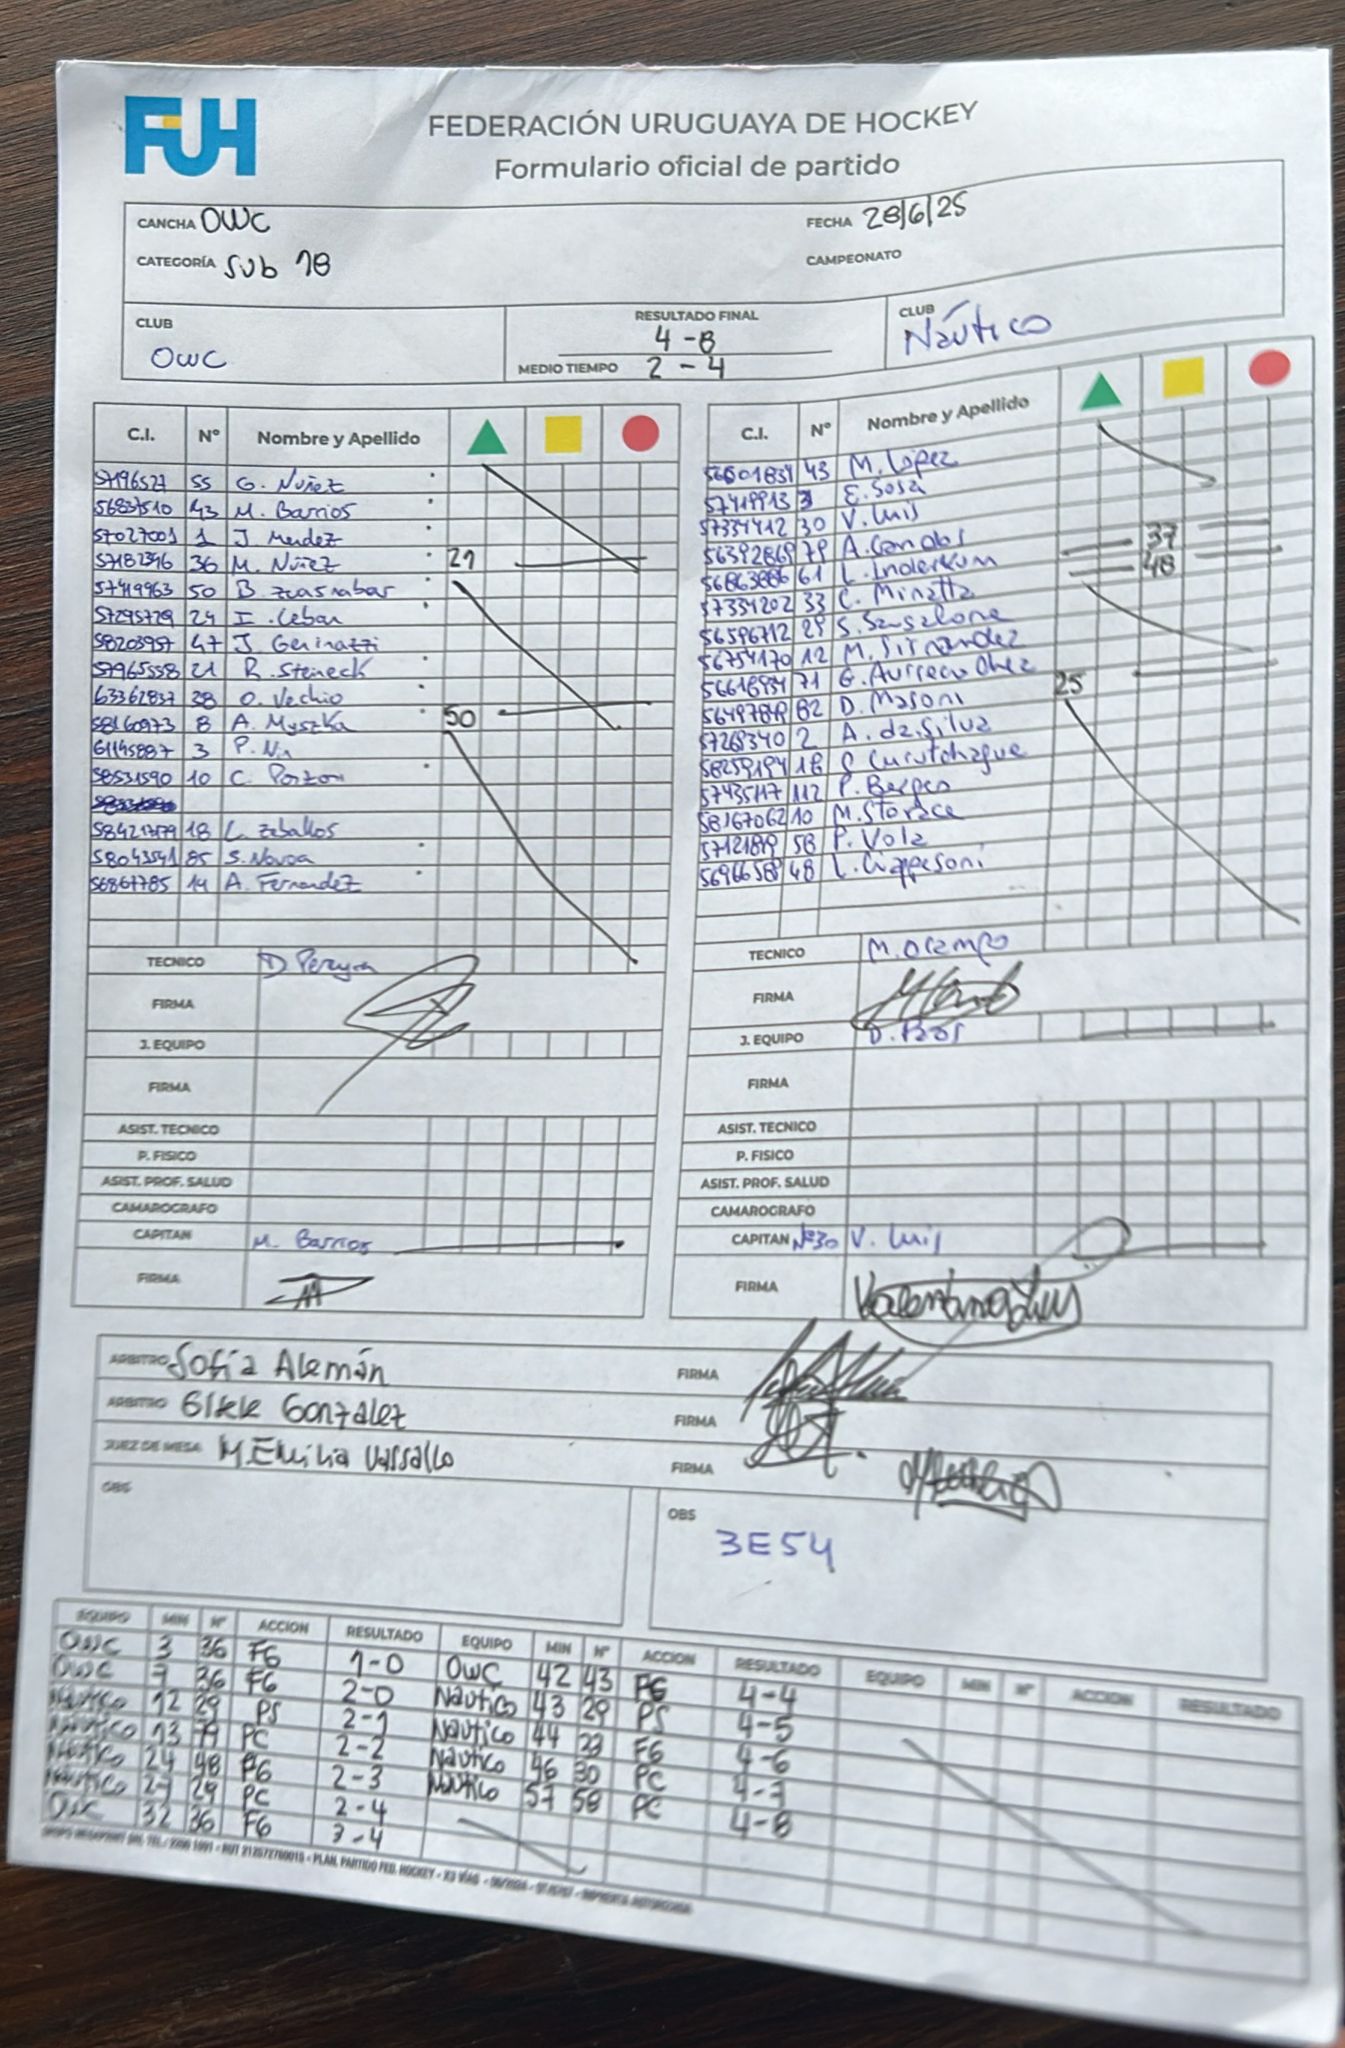 FUH
FEDERACIÓN URUGUAYA DE HOCKEY
Formulario oficial de partido
CANCHA OWC
FECHA 28/6/25
CATEGORÍA SUB 18
CAMPEONATO
CLUB OWC
RESULTADO FINAL 4-8
MEDIO TIEMPO 2-4
CLUB Náutico
C.I. Nº Nombre y Apellido
55 G. Nuñez
56837510 43 M. Barrios
57027001 1 J. Mendez
36 M. Nuñez 29
57419963 50 B.
57295729 24 I. Ceban
58203957 47 J. Gerinazzi
57965558 21 R. Steineck
63362837 38 O. Vechio
58160973 8 A. Myszka 50
61145887 3 P. Na
58531590 10 C.
18 L. Zeballos
58043541 85 S. Novoa
56867785 14 A. Fernandez
TECNICO D Pereyra
FIRMA
J. EQUIPO
FIRMA
ASIST. TECNICO
P. FISICO
ASIST. PROF. SALUD
CAMAROGRAFO
CAPITAN M. Barrios
FIRMA
C.I. Nº Nombre y Apellido
43 M. López
57419913 3 E. Sosa
57334412 30 V. Luis
56392869 79 A. Canobs 37
56863886 61 L. Inderkum 48
57334202 33 C. Minetta
56596712 29 S. Sansalone
56754170 12 M.
71 G.
82 D. Masoni 25
57269340 2 A. da Silva
58259194 18
112 P.
58167062 10 M. Storace
58 P. Volz
48 L.
TECNICO M. Ocampo
FIRMA
J. EQUIPO D.
FIRMA
ASIST. TECNICO
P. FISICO
ASIST. PROF. SALUD
CAMAROGRAFO
CAPITAN Nº30 V. Luis
FIRMA Valentina Luis
ARBITRO Sofía Alemán
FIRMA
ARBITRO González
FIRMA
JUEZ DE MESA M. Emilia Vassallo
FIRMA
OBS
OBS 3E54
EQUIPO MIN Nº ACCION RESULTADO EQUIPO MIN Nº ACCION RESULTADO EQUIPO MIN Nº ACCION RESULTADO
OWC 3 36 FG 1-0 OWC 42 43 FG 4-4
OWC 7 36 FG 2-0 Náutico 43 29 PS 4-5
Náutico 12 29 PS 2-1 Náutico 44 23 FG 4-6
Náutico 13 79 PC 2-2 Náutico 46 30 PC 4-7
Náutico 24 48 FG 2-3 Náutico 57 58 PC 4-8
Náutico 27 29 PC 2-4
OWC 32 36 FG 3-4